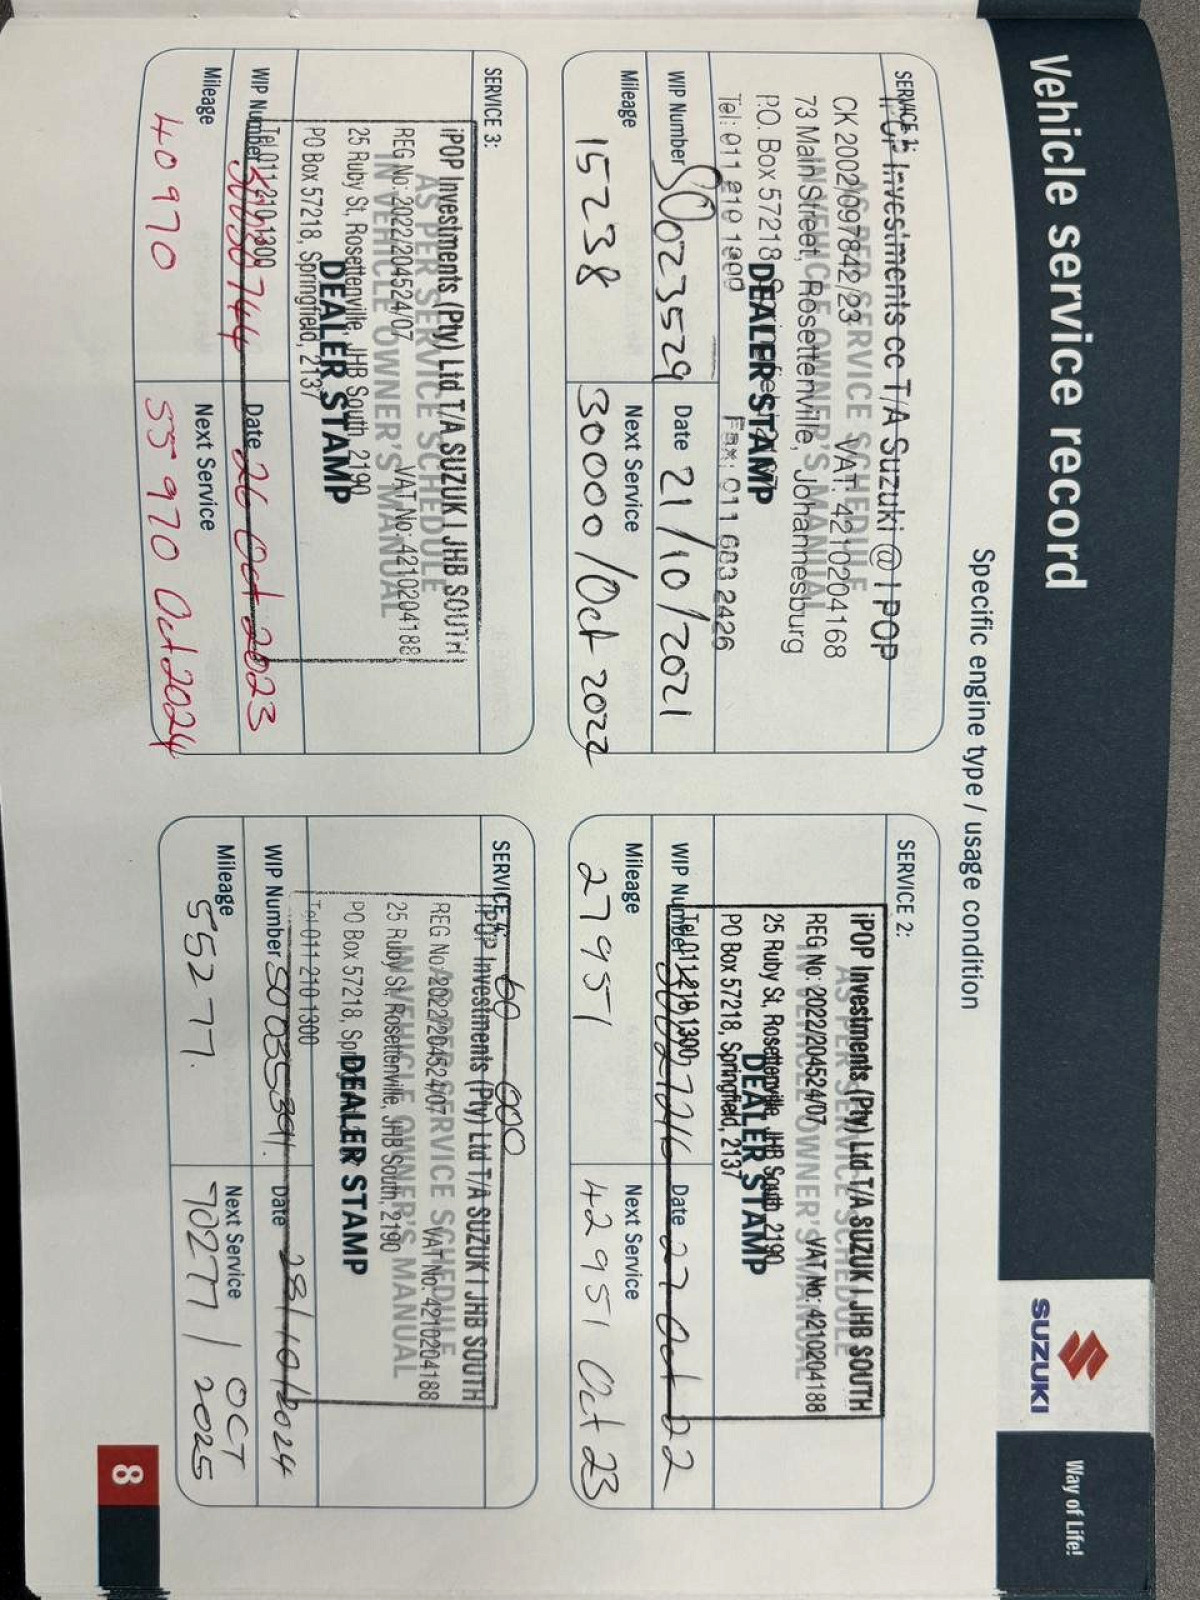 Vehicle service record
SUZUKI
Way of Life!
Specific engine type / usage condition
SERVICE 1:
IPOP Investments cc T/A Suzuki @ I POP
AS PER SERVICE SCHEDULE
CK 2002/097842/23 VAT: 4210204168
IN VEHICLE OWNER'S MANUAL
73 Main Street, Rosettenville, Johannesburg
P.O. Box 57218
DEALER STAMP
Tel: 011 210 1300 Fax: 011 683 2426
WIP Number SO023529
Date 21/10/2021
Mileage
15238
Next Service
30000/Oct 2022
SERVICE 2:
iPOP Investments (Pty) Ltd T/A SUZUKI JHB SOUTH
AS PER SERVICE SCHEDULE
REG No: 2022/204524/07 VAT No: 4210204188
IN VEHICLE OWNER'S MANUAL
25 Ruby St, Rosettenville, JHB South, 2190
DEALER STAMP
PO Box 57218, Springfield, 2137
Tel 011 210 1300
WIP Number
Date 27 Oct 22
Mileage
27951
Next Service
42951 Oct 23
SERVICE 3:
iPOP Investments (Pty) Ltd T/A SUZUKI JHB SOUTH
AS PER SERVICE SCHEDULE
REG No: 2022/204524/07 VAT No: 4210204188
IN VEHICLE OWNER'S MANUAL
25 Ruby St, Rosettenville, JHB South, 2190
DEALER STAMP
PO Box 57218, Springfield, 2137
Tel 011 210 1300
WIP Number
Date 26 Oct 2023
Mileage
40970
Next Service
55970 Oct 2024
SERVICE 4:
60 000
iPOP Investments (Pty) Ltd T/A SUZUKI JHB SOUTH
AS PER SERVICE SCHEDULE
REG No: 2022/204524/07 VAT No: 4210204188
IN VEHICLE OWNER'S MANUAL
25 Ruby St, Rosettenville, JHB South, 2190
DEALER STAMP
PO Box 57218,
Tel 011 210 1300
WIP Number SO035391.
Date 28/10/2024
Mileage
55277.
Next Service
70277 / OCT
2025
8